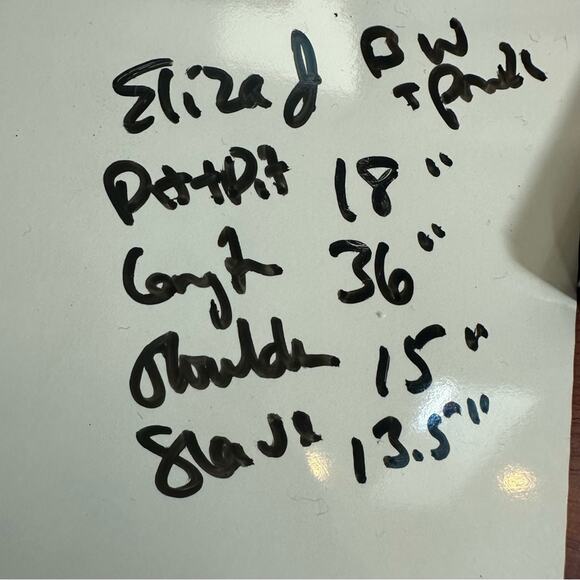 Eliza J BW
Pit + Pit 18"
Length 36"
Shoulder 15"
Sleeve 13.5"